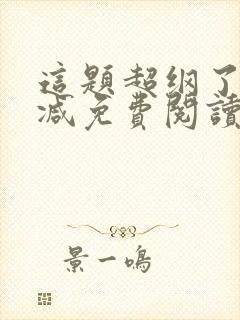 這題超纲了
减免費閱讀
景一鳴